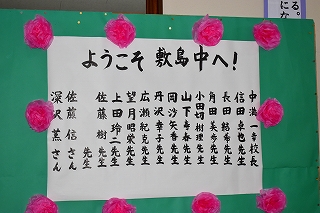 ようこそ 敷島中へ!
中澤 一 校長
信田 卓也 先生
長田 結希 先生
角田 美歩 先生
小田切 樹理 先生
山下 春香 先生
岡 沙矢香 先生
丹沢 幸子 先生
広瀬 紀克 先生
望月 昭栄 先生
上田 玲二 先生
佐藤 樹 先生
佐藤 信 さん
深沢 薫 さん
る。
にか